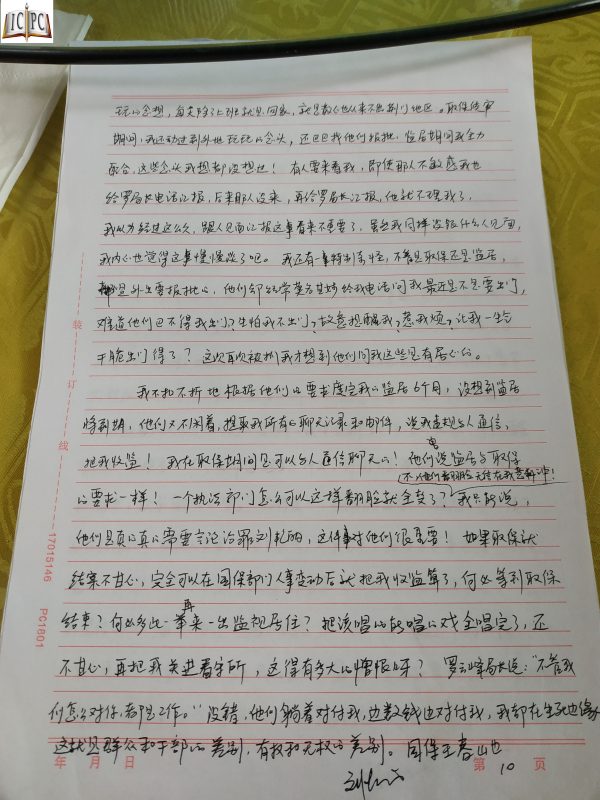 ICPC
玩的念想，每天除了上班就是回家，就是散心也从来不出荆门地区。取保候审
期间，我还动过到外地玩玩的念头，还巴巴找他们报批。监居期间我全力
配合，这些念头我想都没想过！有人要来看我，即使那人不敏感我也
给罗局长电话汇报，后来那人没来，再给罗局长汇报，他就不理我了，
我以为经过这么久，跟人见面汇报这事看来不重要了，虽然我同样没敢什么人见面，
我内心也觉得这事慢慢淡了吧。我还有一事特别奇怪，不管是取保还是监居，
都是外出要报批的，他们却经常莫名其妙给我电话问我最近是不是要出门，
难道他们巴不得我出门？生怕我不出门？故意提醒我？惹我烦？让我一生气
干脆出门得了？这次再次被抓我才想到他们问我这些是有居心的。
我不折不扣地根据他们的要求度完我的监居6个月，没想到监居
将到期，他们又不闲着，提取我所有的聊天记录和邮件，说我违规与人通信，
把我收监！我在取保期间是可以与人通信聊天的！他们说监居与取保
不，他们翻脸无情在我意料中！
的要求一样！一个执法部门怎么可以这样翻脸就全变了？我只能说，
他们是真的真的需要言论治罪刘艳丽，这件事对他们很重要！如果取保就
结案不甘心，完全可以在国保部门人事变动后就把我收监算了，何必等到取保
结束？何必多此一举再来一出监视居住？把该唱的能唱的戏全唱完了，还
不甘心，再把我关进看守所，这得有多大的憎恨呀？罗云峰局长说："不管我
们怎么对你，都是工作。"没错，他们躺着对付我，边数钱边对付我，我却在生死边缘
这就是群众和干部的差别，有权和无权的差别。国保王春山也
装
订
线
17015146
PC1801
年 月 日
第 10 页